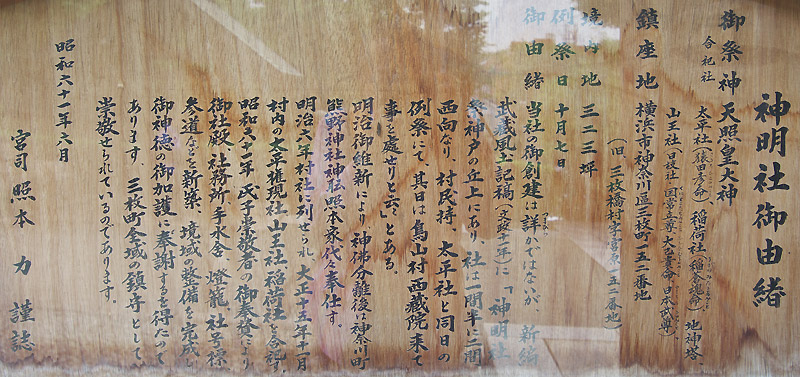 神明社御由緒
御祭神 天照皇大神
合祀社 太平社(猿田彦命) 稲荷社(稲倉魂命) 地神塔
山王社 日皇社(国常立尊 大己貴命 日本武尊)
鎮座地 横浜市神奈川区三枚町一五二番地
(旧 三枚橋村字宮原一五二番地)
境内地 三二三坪
例祭日 十月七日
御由緒 当社の御創建は詳かではないが、新編
武蔵風土記稿(文政十一年)に「神明社
祭神戸の丘上にあり、社は一間半に二間
西向なり、村民持、太平社と同日の
例祭にて、其日は鳥山村西蔵院来て
事を処せりと云」とある。
明治御維新により、神佛分離後は神奈川町
熊野神社神職照本家代々奉仕す。
明治六年村社に列せられ、大正十五年十一月
村内の太平権現社山王社稲荷社を合祀す。
昭和六十一年氏子崇敬者の御奉賛により
御社殿、社務所、手水舎、燈籠、社号標、
参道などを新築、境域の整備を完成し
御神徳の御加護に奉謝するを得たので
あります。三枚町全域の鎮守として
崇敬せられているのであります。
昭和六十一年六月
宮司 照本 力 謹誌